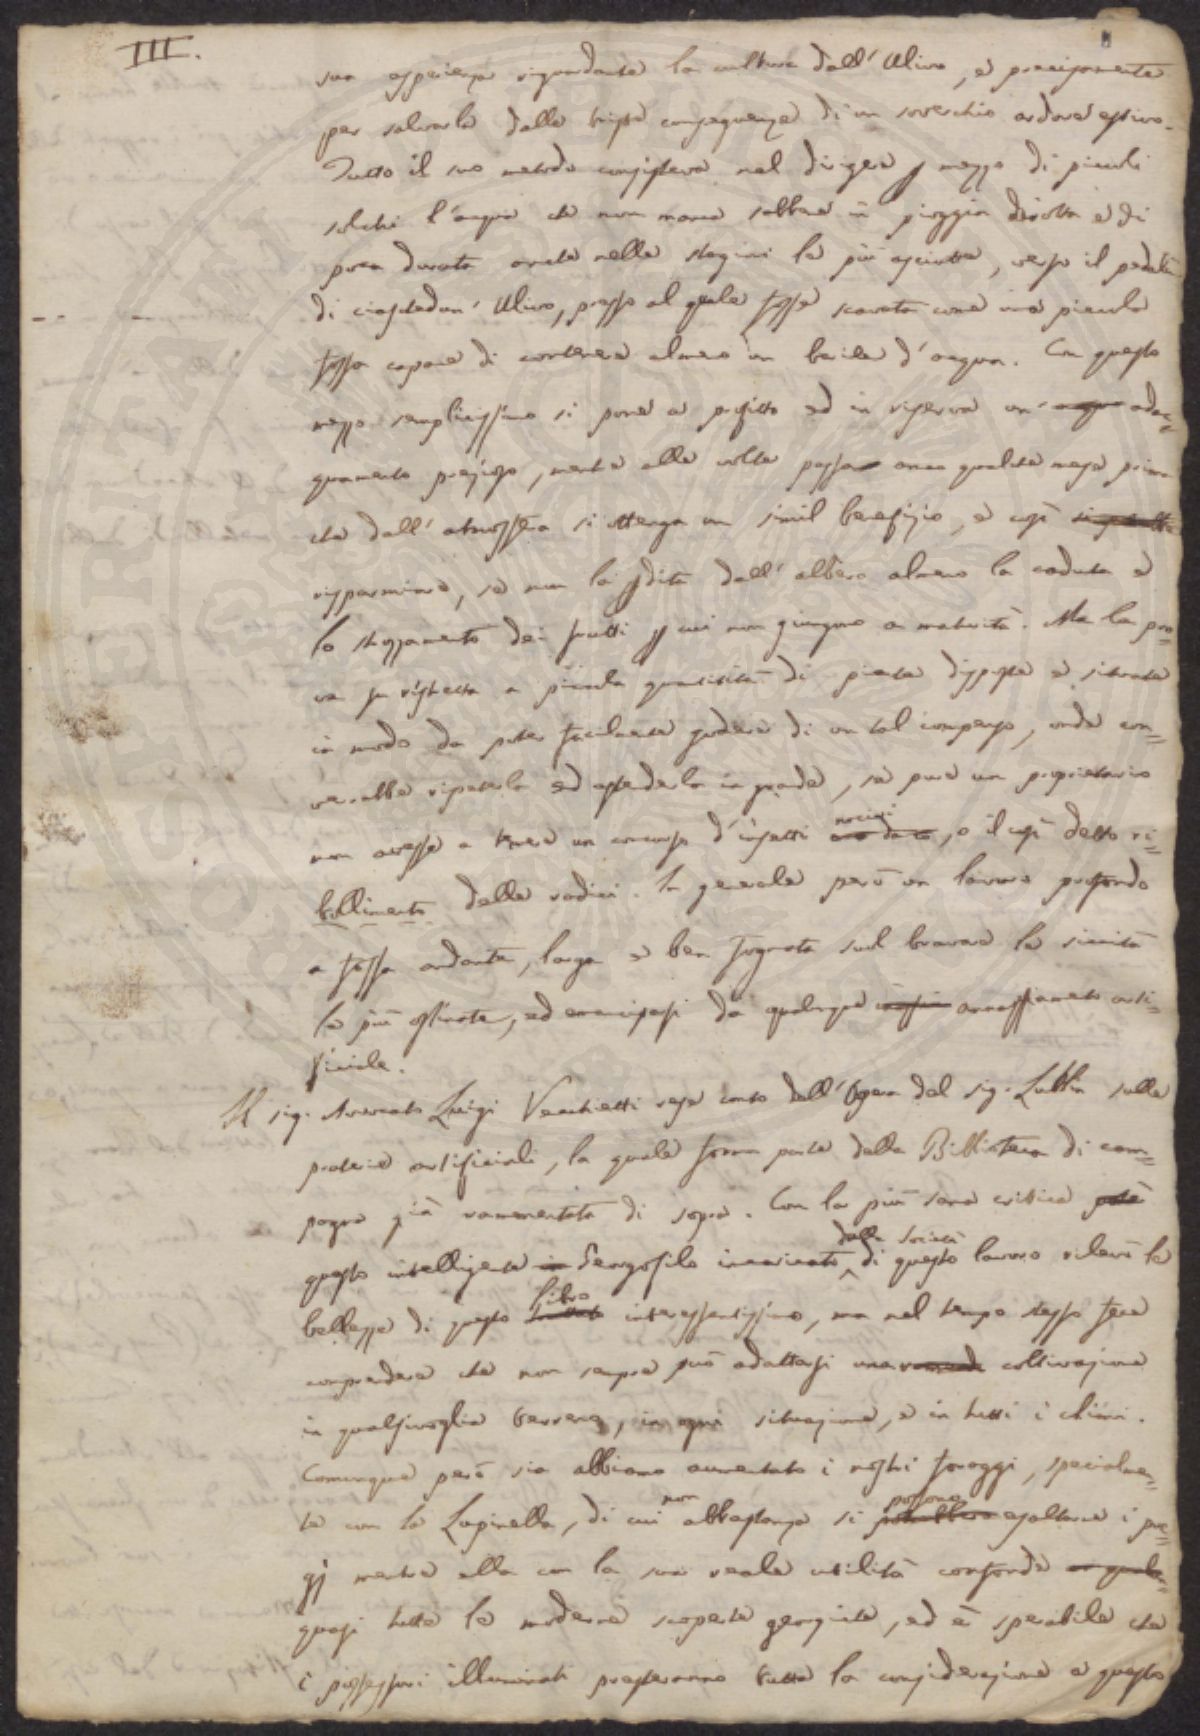 III.
sue esperienze riguardante la cultura dell'Ulivo, e precipuamente
per salvarlo dalle triste conseguenze di un soverchio ardore estivo.
Tutto il suo metodo consisteva nel dirigere p mezzo di piccoli
solchi l'acqua che non manca sebbene in pioggia dirotta e di
poca durata anche nelle stagioni le più asciutte, verso il pedale
di ciaschedun' Ulivo, presso al quale fosse scavata come una piccola
fossa capace di contenere almeno un barile d'acqua. Con questo
mezzo semplicissimo si pone a profitto ed in riserva un adac=
quamento prezioso, mentre alle volte passa anco qualche mese prima
che dall'atmosfera si ottenga un simil benefizio, e così
risparmiare, se non la pdita dell'albero almeno la caduta e
lo strozzamento dei frutti p cui non giungono a maturità. Ma la pro=
va fu ristretta a piccola quantità di piante disposte e situate
in modo da poter facilmente godere di un tal compenso, onde con=
verrebbe ripeterla ed estenderla in grande, se pure un proprietario
non avesse a temere un concorso d'insetti nocivi, o il così detto ri=
bollimento delle radici. In generale però un lavoro profondo
a fossa andante, larga e ben fognata suol bravare le siccità
le più ostinate, ed emanciparsi da qualunque annaffiamento arti=
ficiale.
Il sig. Avvocato Luigi Vecchietti rese conto dell'Opera del sig. Lullin sulle
praterie artificiali, la quale forma parte della Biblioteca di cam=
pagna già rammentata di sopra. Con la più sana critica
questo intelligente Georgofilo incaricato dalla Società di questo lavoro rilevò le
bellezze di questo libro interessantissimo, ma nel tempo stesso fece
comprendere che non sempre può adattarsi una coltivazione
in qualsivoglia terreno, in ogni situazione, e in tutti i climi.
Comunque però sia abbiamo aumentato i nostri foraggi, specialmen=
te con la Lupinella, di cui non abbastanza si possono esaltare i pre=
gj mentre ella con la sua reale utilità confonde
quasi tutte le moderne scoperte georgiche, ed è sperabile che
i possessori illuminati presteranno tutta la considerazione a questo